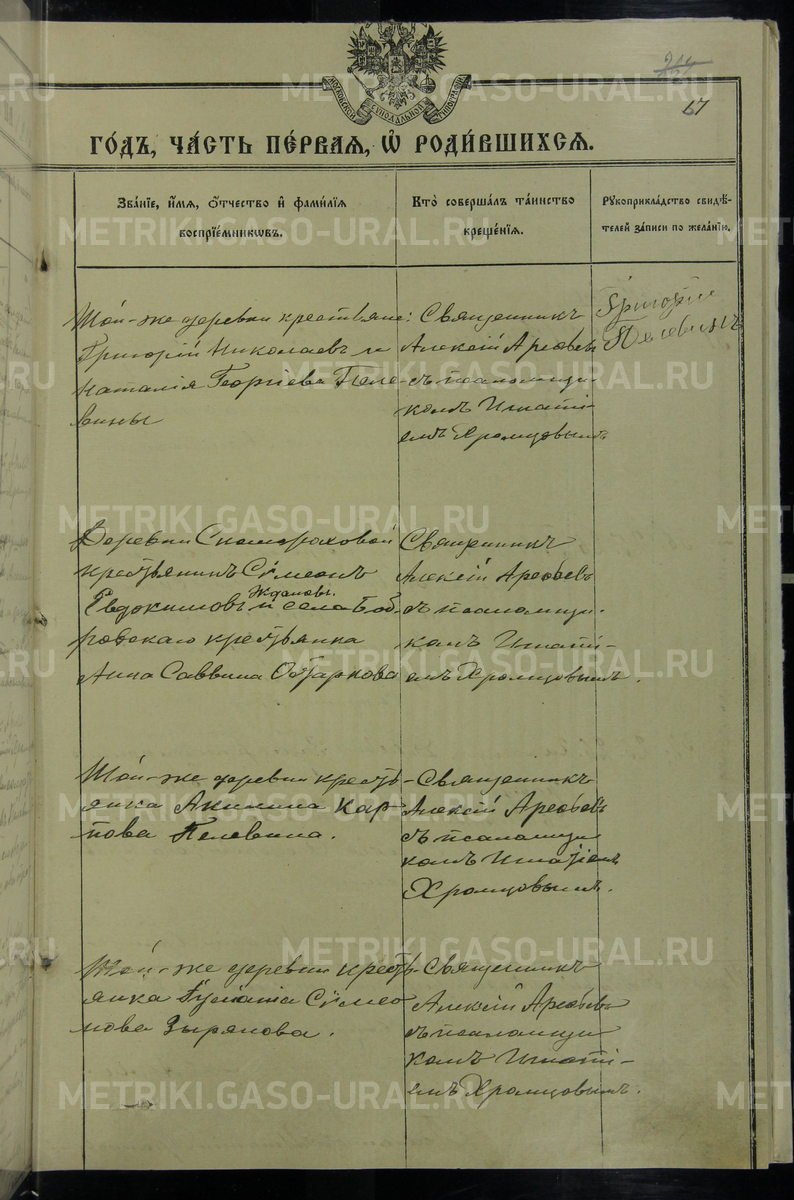 МОСКОВСКОЙ СѴНОДАЛЬНОЙ ТИПОГРАФІИ
67
ГО́ДЪ, ЧА́СТЬ ПЕ́РВАѦ, Ѡ҆ РОДИ́ВШИХСѦ.
Зва́нїе, и҆́мѧ, ѻ҆́тчество и҆ фами́лїѧ
воспрїе́мникѡвъ.
Кто̀ соверша́лъ та́инство
креще́нїѧ.
Рꙋкоприкла́дство свидѣ́-
телей за́писи по жела́нїю.
Той-же деревни крестьяне:
Григорій Николаевъ и
Наталія Георгіева Пеле-
вины
Священникъ
Алексій Арефьев
съ псаломщи-
комъ Игнаті-
емъ Хромцовымъ
Григорій
Пелевинъ
Деревни Скомороховой
крестьянинъ Сѵмеонъ
Евдокимовъ Ждановъ и села Боб-
ровскаго крестьянка
Анна Саввина Старкова
Священникъ
Алексій Арефьевъ
съ псаломщи-
комъ Игнаті-
емъ Хромцовымъ.
Той-же деревни кресть-
янка Акилина Кар-
пова Пелевина.
Священникъ
Алексій Арефьевъ
съ псаломщи
комъ Игнатіемъ
Хромцовымъ.
Той-же деревни кресть-
янка Сѵмео
нова Зырянова.
Священникъ
Алексій Арефьевъ
съ псаломщи
комъ Игнаті-
емъ Хромцовымъ.
METRIKI.GASO-URAL.RU